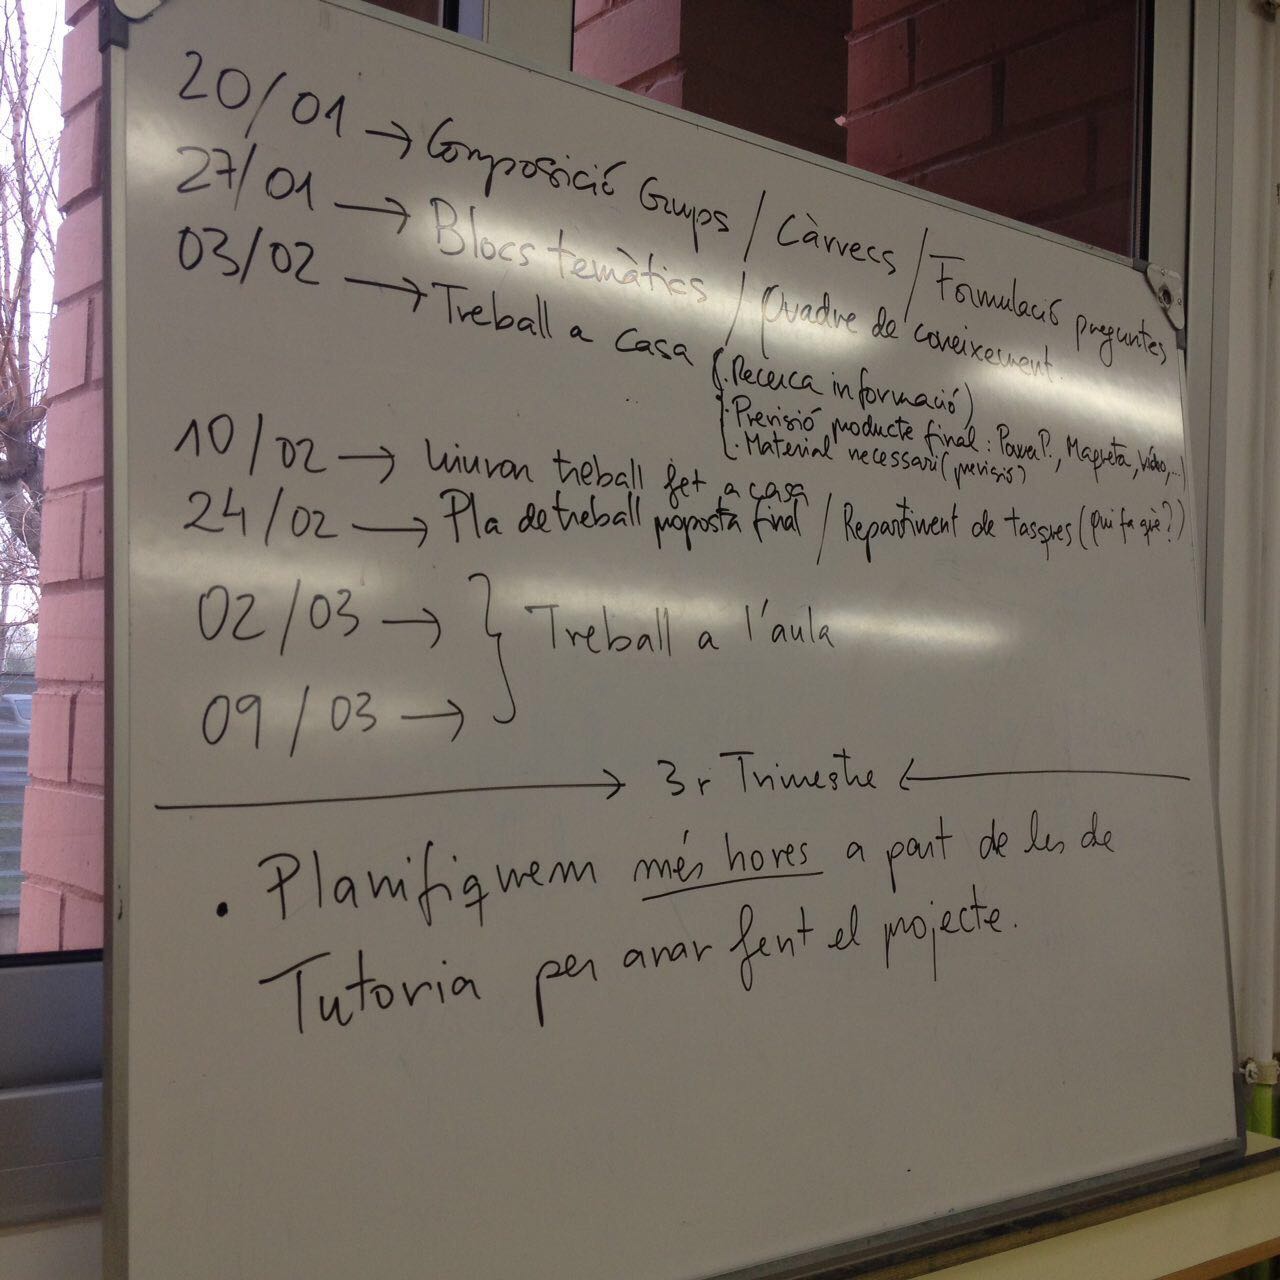 20/01 → Composició Grups / Càrrecs / Formulació preguntes
27/01 → Blocs temàtics / Quadre de coneixement.
03/02 → Treball a casa (. Recerca informació)
· Previsió producte final: PowerP., Maqueta, vídeo,...
· Material necessari (previsió)
10/02 → Lliuren treball fet a casa
24/02 → Pla de treball proposta final / Repartiment de tasques (Qui fa què?)
02/03 → } Treball a l'aula
09/03 →
→ 3r Trimestre ←
• Planifiquem més hores a part de les de
Tutoria per anar fent el projecte.